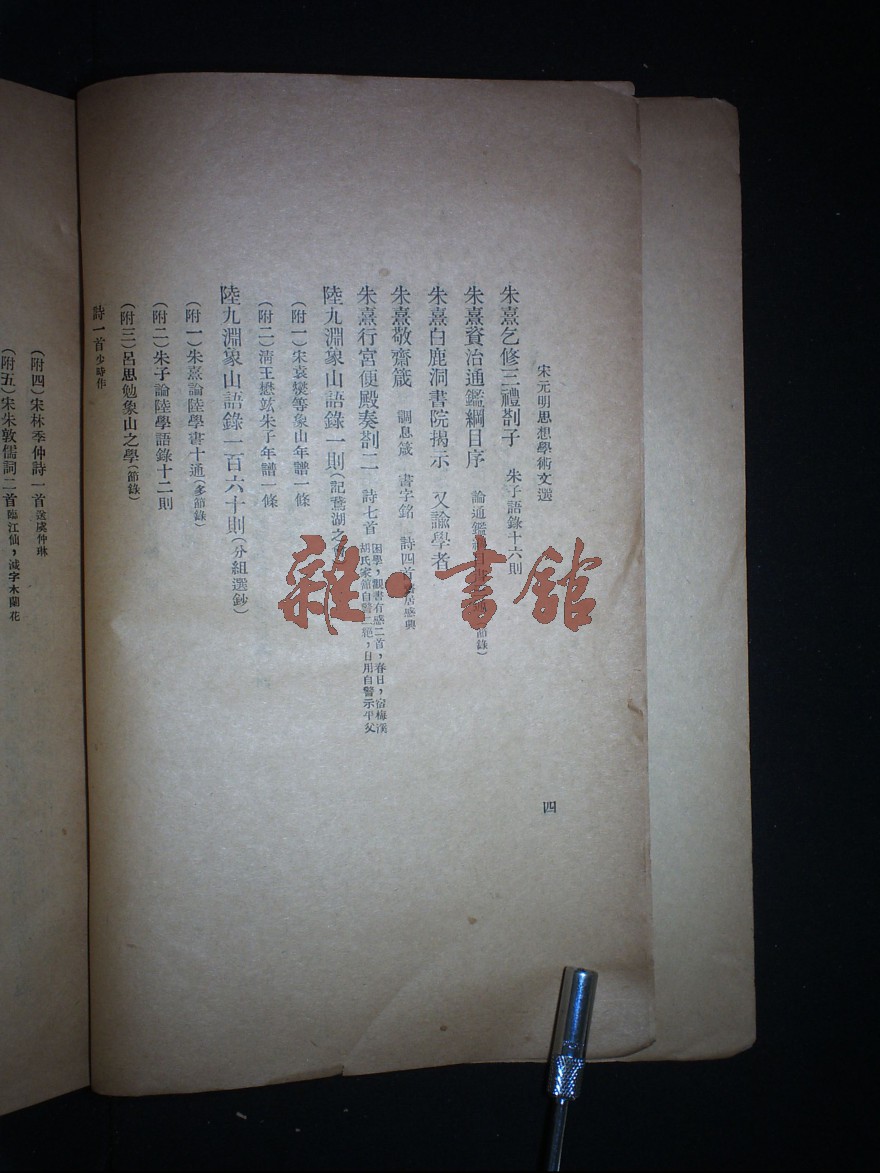 宋元明思想學術文選
四
朱熹乞修三禮劄子 朱子語錄十六則
朱熹資治通鑑綱目序 論通鑑綱目 節錄)
朱熹白鹿洞書院揭示 又諭學者
朱熹敬齋箴 調息箴 書字銘 詩四首 居感興
朱熹行宮便殿奏劄二 詩七首 困學,觀書有感二首,春日,宿梅溪
胡氏家館自警二絕,日用自警示平父
陸九淵象山語錄一則(記鵞湖之會
(附一)宋袁燮等象山年譜一條
(附二)清王懋竑朱子年譜一條
陸九淵象山語錄一百六十則(分組選鈔)
(附一)朱熹論陸學書十通(多節錄)
(附二)朱子論陸學語錄十二則
(附三)呂思勉象山之學(節錄)
詩一首少時作
(附四)宋林季仲詩一首送虞仲琳
(附五)宋朱敦儒詞二首臨江仙,減字木蘭花
雜·書館